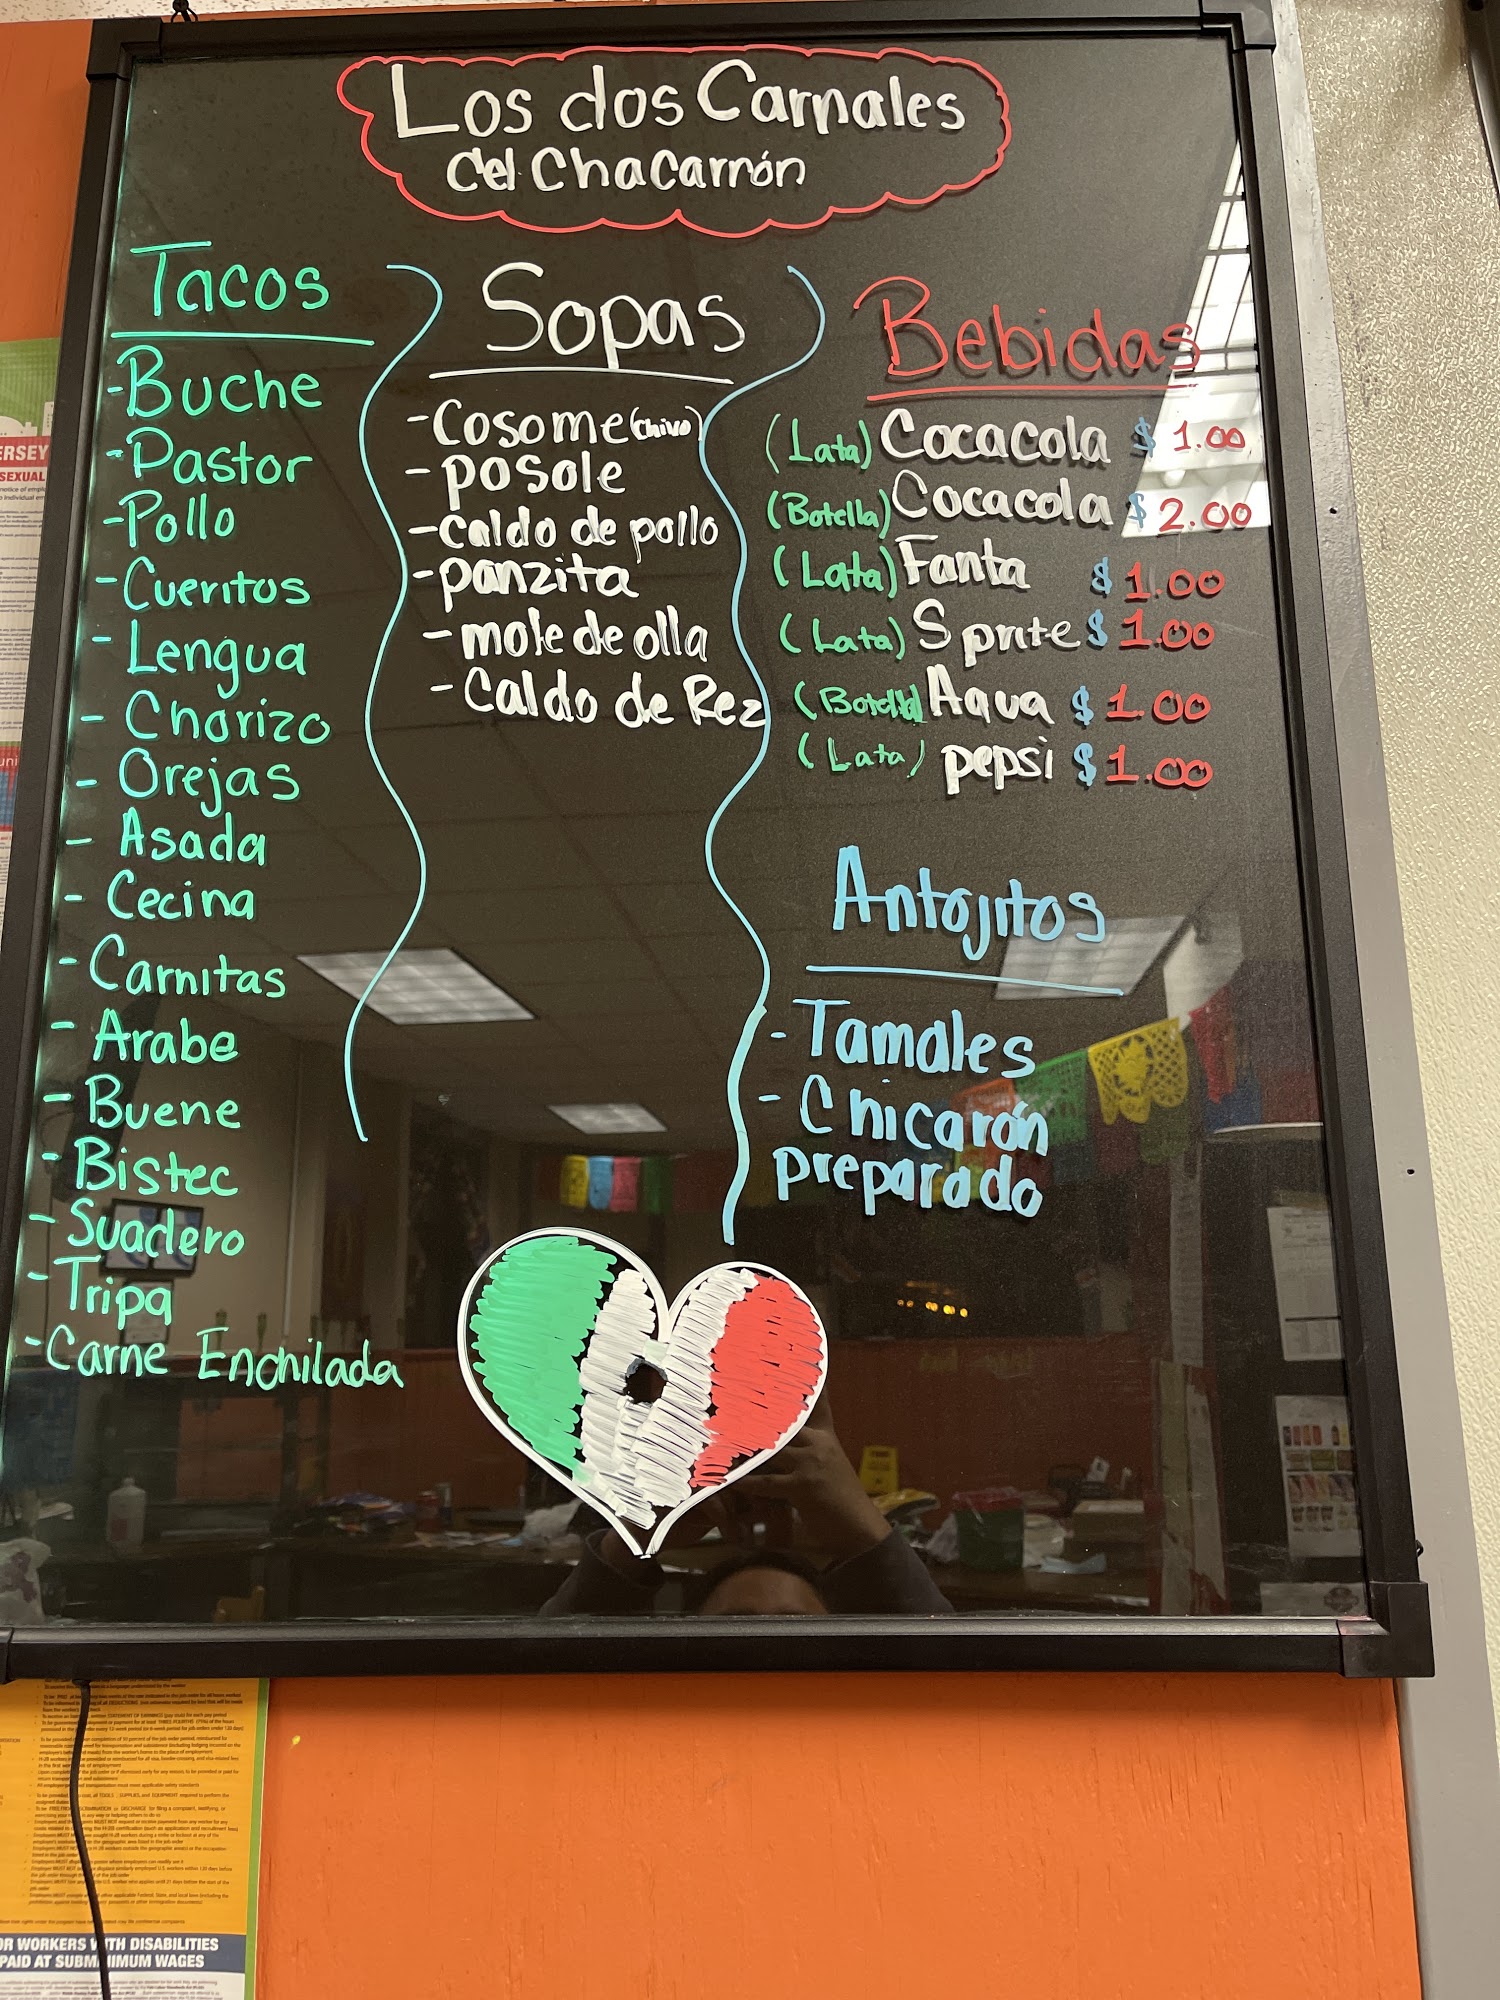 Los dos Carnales
del Chacarrón
Tacos
- Buche
- Pastor
- Pollo
- Cueritos
- Lengua
- Chorizo
- Orejas
- Asada
- Cecina
- Carnitas
- Arabe
- Buene
- Bistec
- Suadero
- Tripa
- Carne Enchilada
Sopas
- Cosome (chivo)
- posole
- caldo de pollo
- panzita
- mole de olla
- Caldo de Rez
Bebidas
(Lata) Cocacola $ 1.00
(Botella) Cocacola $ 2.00
(Lata) Fanta $ 1.00
(Lata) Sprite $ 1.00
(Botella) Aqua $ 1.00
(Lata) pepsi $ 1.00
Antojitos
- Tamales
- Chicarón
preparado
ERSEY
SEXUAL
OR WORKERS WITH DISABILITIES
PAID AT SUBMINIMUM WAGES